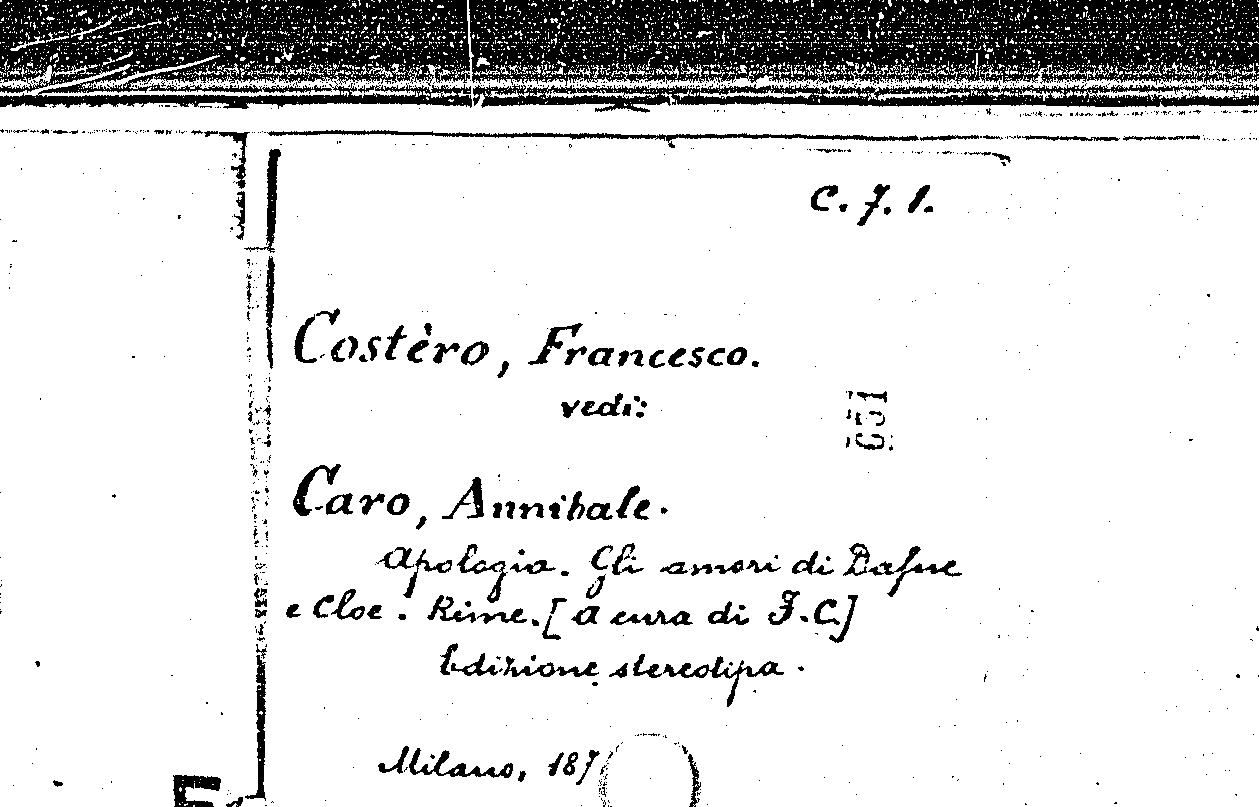 C. 7. 1.
Costèro, Francesco.
vedi:
651
Caro, Annibale.
Apologia. Gli amori di Dafne
e Cloe. Rime. [A cura di F.C.]
Edizione stereotipa.
Milano, 187
E